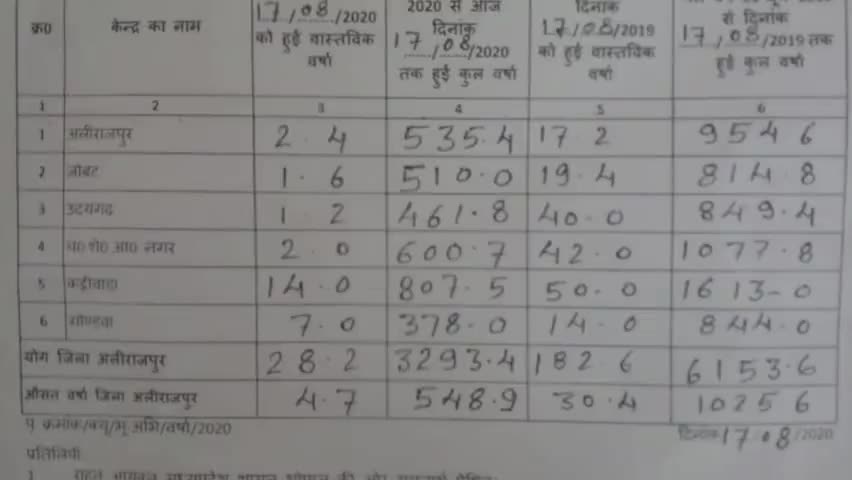 क्र0 केन्द्र का नाम 17/08/2020 को हुई वास्तविक वर्षा 2020 से आज दिनांक 17/08/2020 तक हुई कुल वर्षा दिनांक 17/08/2019 को हुई वास्तविक वर्षा से दिनांक 17/08/2019 तक हुई कुल वर्षा
1 2 3 4 5 6
1 अलीराजपुर 2.4 535.4 17 2 954 6
2 जोबट 1.6 510.0 19.4 814.8
3 उदयगढ़ 1 2 461.8 40.0 849.4
4 च0शे0आ0 नगर 2.0 600.7 42.0 1077.8
5 कट्ठीवाड़ा 14.0 807.5 50.0 1613-0
6 सोण्डवा 7.0 378.0 14.0 844.0
योग जिला अलीराजपुर 28.2 3293.4 182.6 6153.6
औसत वर्षा जिला अलीराजपुर 4.7 548.9 30.4 1025 6
पृ क्रमांक/क्यू/भू.अभि/वर्षा/2020 दिनांक 17.08/2020
प्रतिलिपी